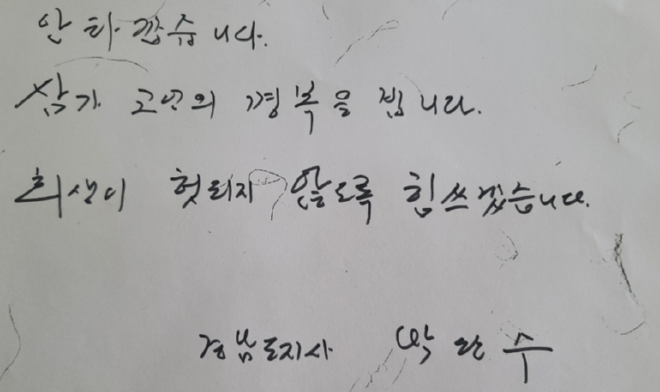 안타깝습니다.
삼가 고인의 명복을 빕니다.
희생이 헛되지 않도록 힘쓰겠습니다.
경남도지사 박완수